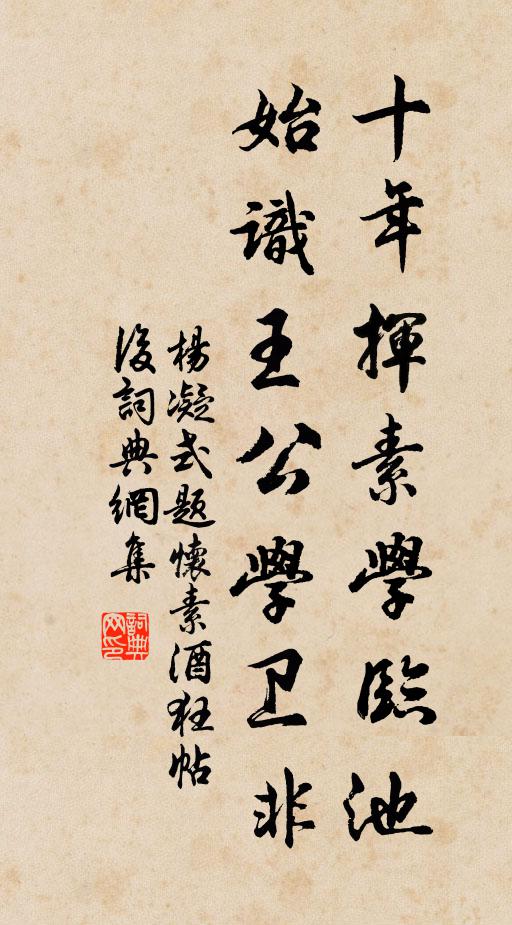 十年揮素學臨池
始識王公學卫非
楊凝式题懷素酒狂帖
後詞典網集
詞典网印